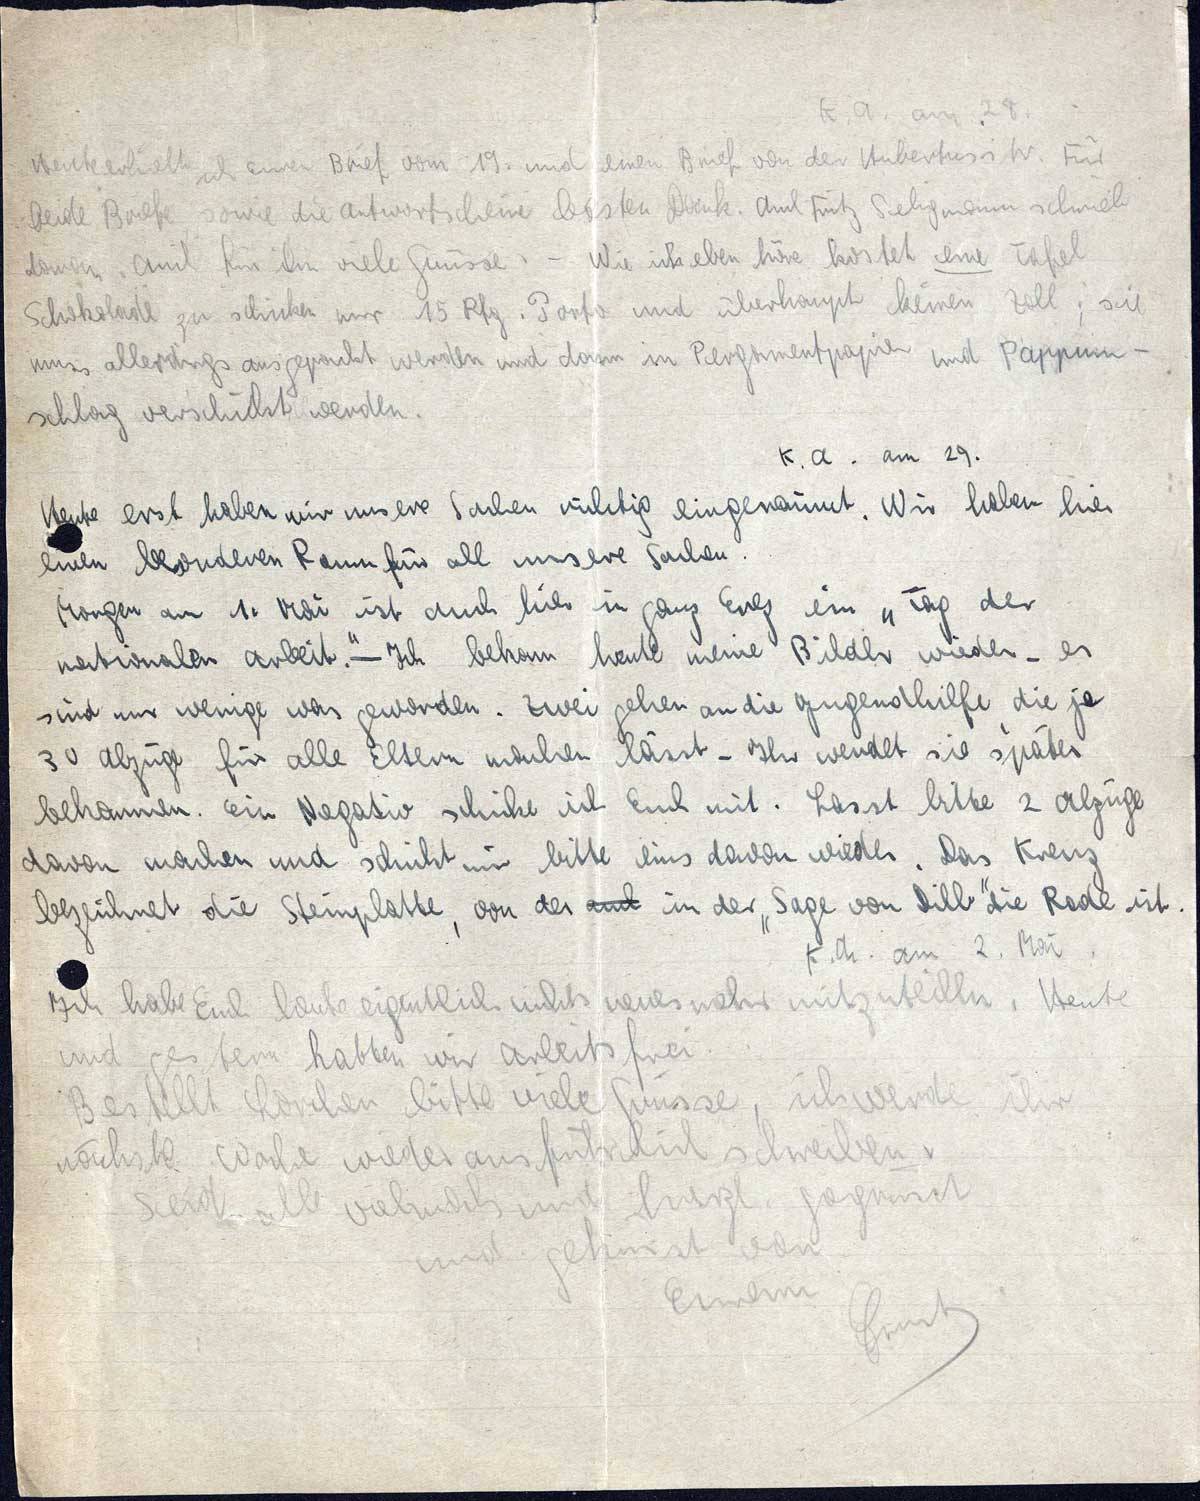 K.A. am 28.
Heute erhielt ich Euren Brief vom 19. und einen Brief von der Hubertusstr. Für
beide Briefe, sowie die Antwortscheine besten Dank. Auch Fritz Seligmann schrieb
daran. Auch für ihn viele Grüsse. - Wie ich eben höre kostet eine Tafel
Schokolade zu schicken nur 15 Pfg. Porto und überhaupt keinen Zoll; sie
muss allerdings ausgepackt werden und dann in Pergamentpapier und Pappum-
schlag verschickt werden.
K.A. am 29.
Heute erst haben wir unsere Sachen richtig eingeräumt. Wir haben hier
einen besonderen Raum für all unsere Sachen.
Morgen am 1. Mai ist auch hier in ganz Erez ein „Tag der
nationalen Arbeit." - Ich bekam heute meine Bilder wieder - es
sind nur wenige was geworden. Zwei gehen an die Jugendhilfe, die je
30 Abzüge für alle Eltern machen lässt - Ihr werdet sie später
bekommen. Ein Negativ schicke ich Euch mit. Lasst bitte 2 Abzüge
davon machen und schickt mir bitte eins davon wieder. Das Kreuz
bezeichnet die Steinplatte, von der in der „Sage von Dill" die Rede ist.
K.A. am 2. Mai.
Ich habe Euch heute eigentlich nichts neues mehr mitzuteilen. Heute
und gestern hatten wir arbeitsfrei.
Bestellt Lorchen bitte viele Grüsse, ich werde ihr
nächste Woche wieder ausführlich schreiben.
Seid alle vielmals und herzl. gegrüsst
und geküsst von
Eurem
Ernst